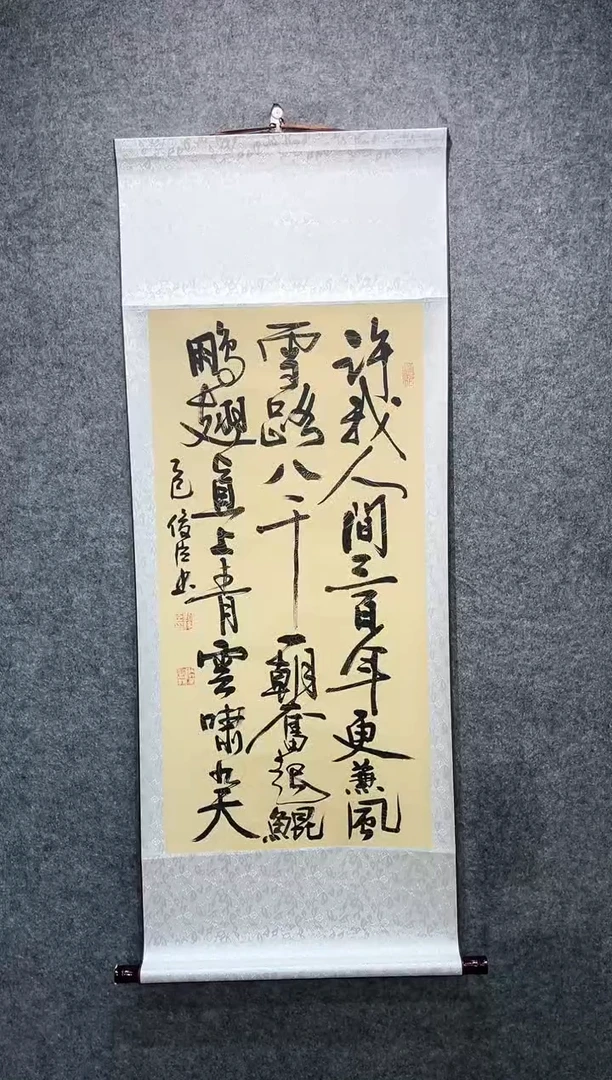 許我人間三百年更兼風
雪路八千一朝奮起鯤
鵬翅直上青雲嘯九天
乙巳 俊臣书